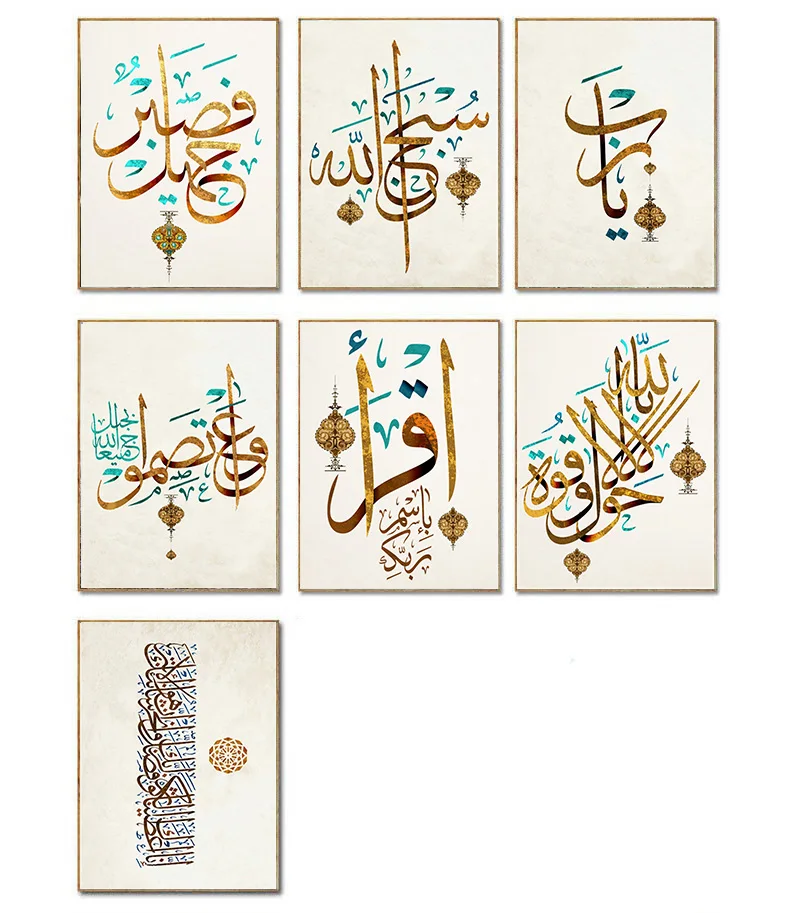 فصبرٌ
جميل
سُبحان الله
يا رب
واعتصموا
بحبل
الله
جميعا
اقرأ
بإسم
ربّك
لا حول ولا قوة إلا بالله